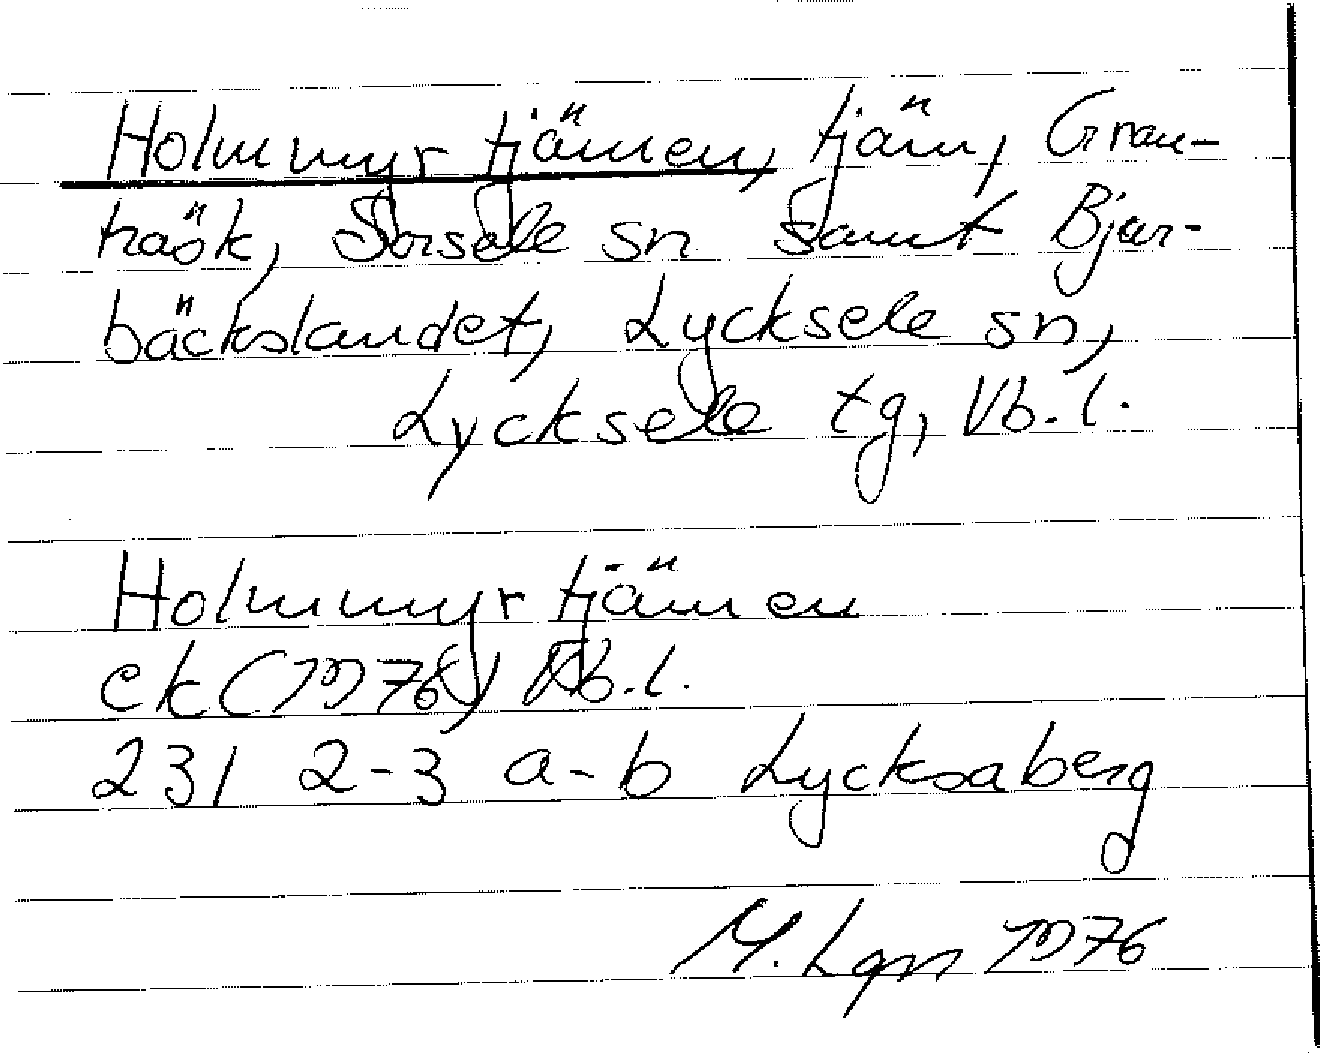 Holmmyrtjärnen, tjärn, Gran-
träsk, Sorsele sn samt Bjur-
bäckslandet, Lycksele sn,
Lycksele tg, Vb. l.
Holmmyrtjärnen
ek (1976) Vb. l.
23I 2-3 a-b Lycksaberg
M. Lgn 1976